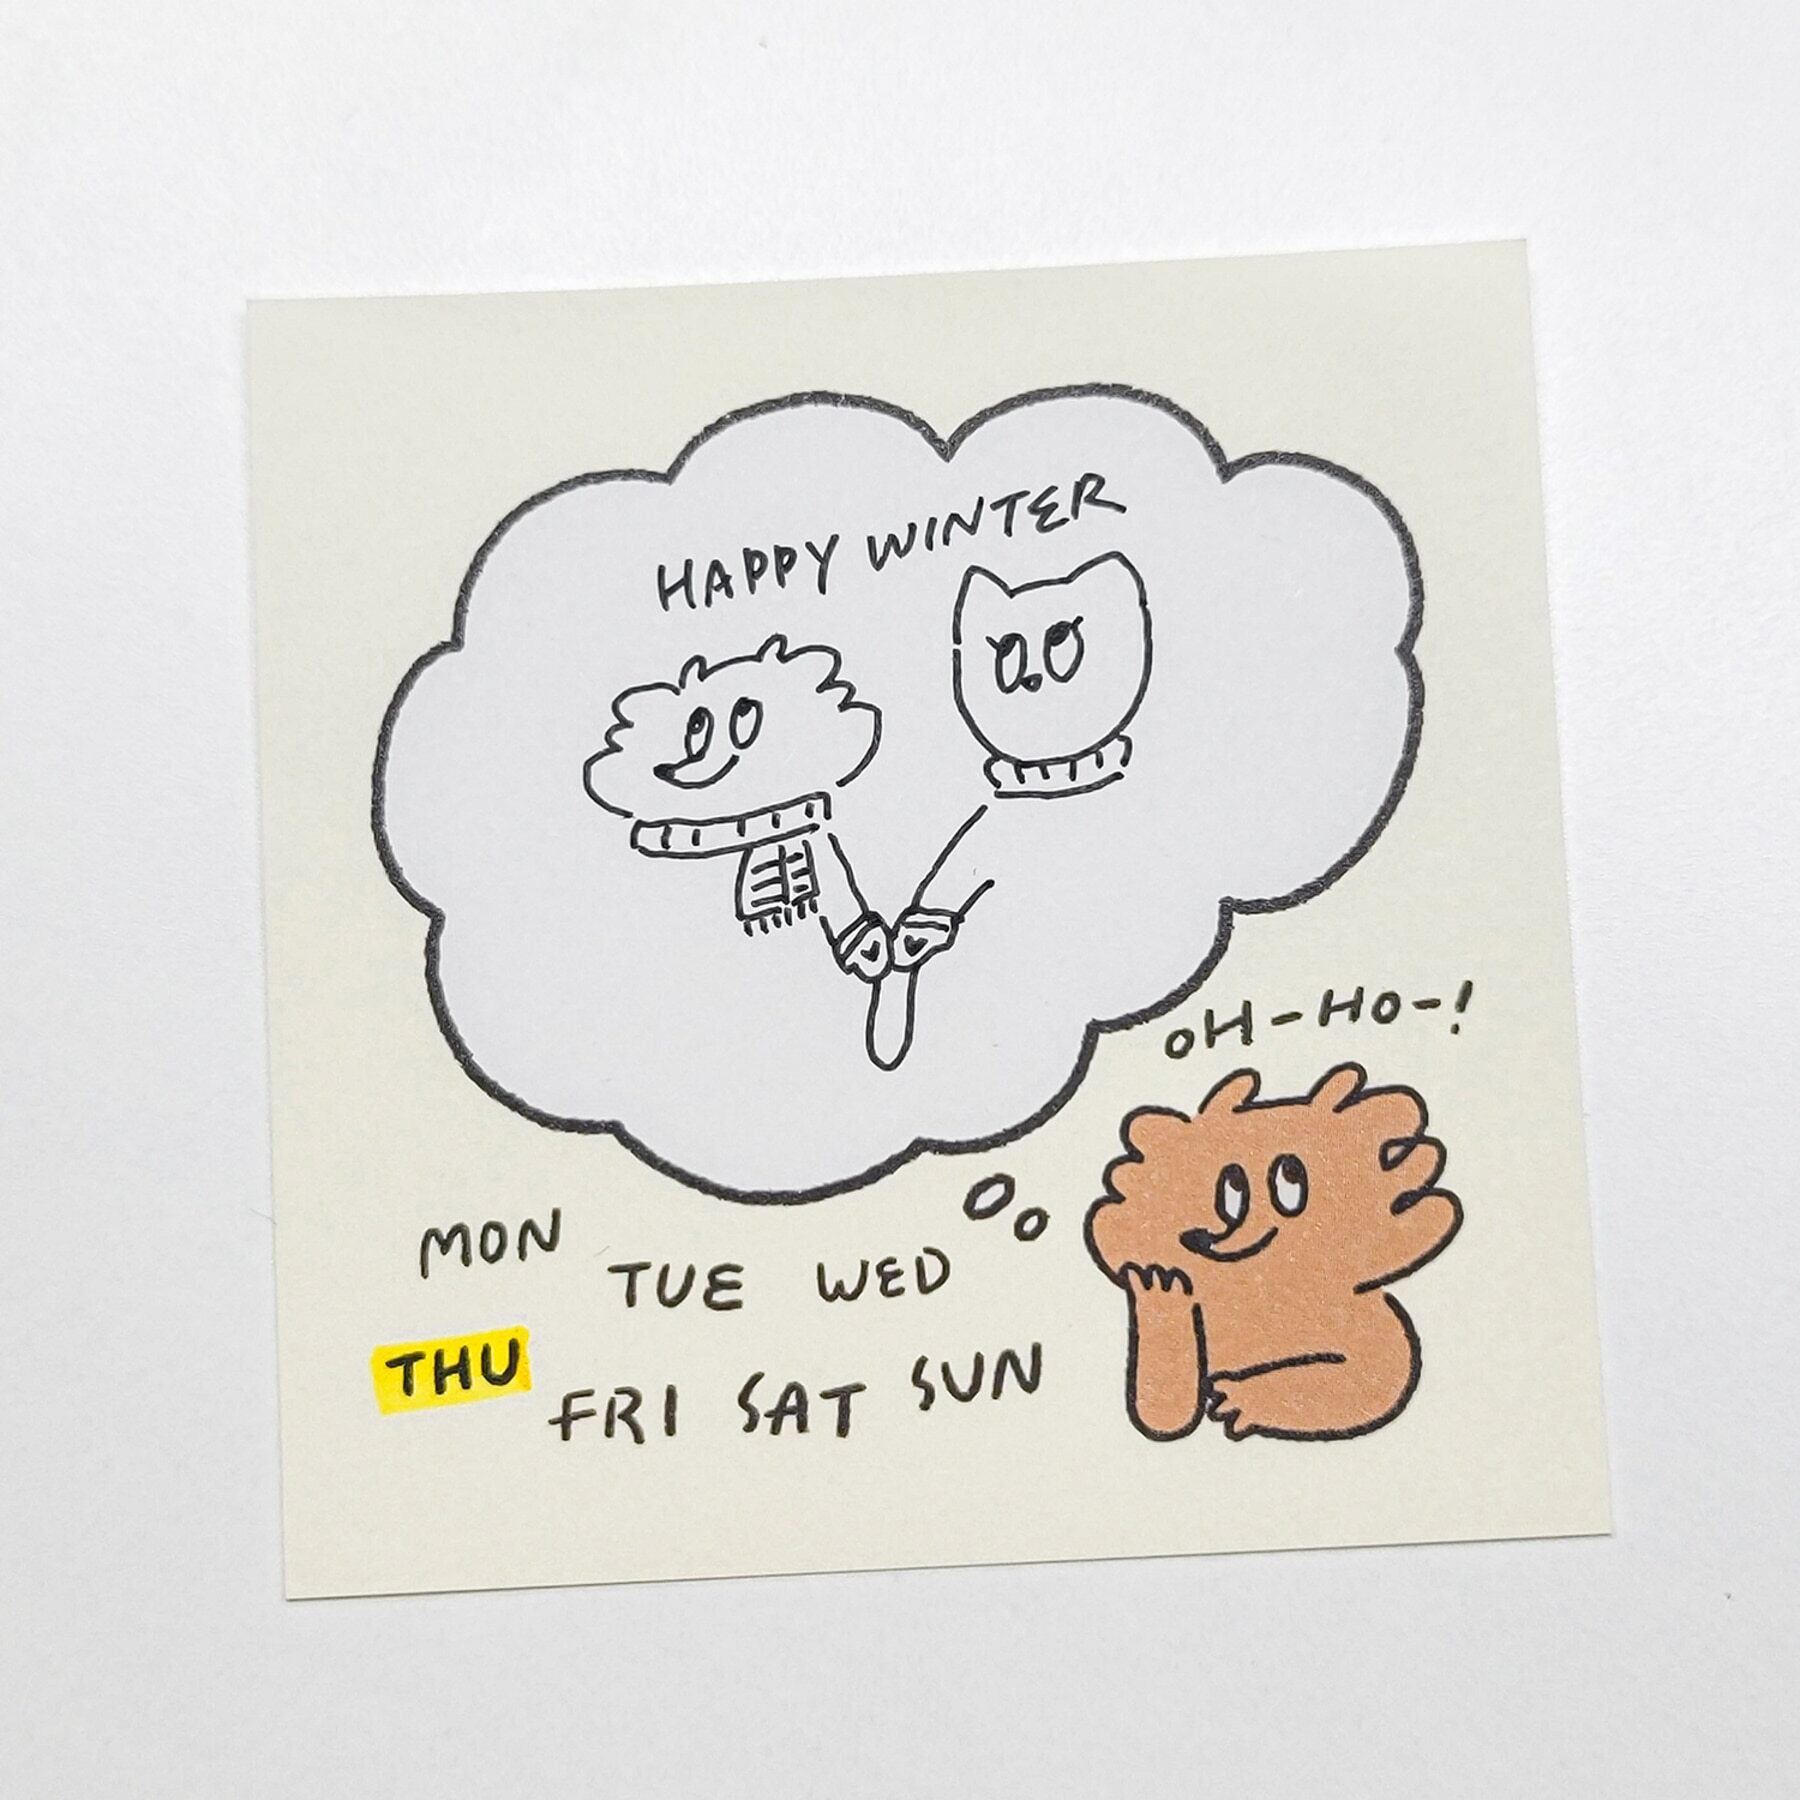 HAPPY WINTER
OH-HO-!
MON TUE WED
THU FRI SAT SUN